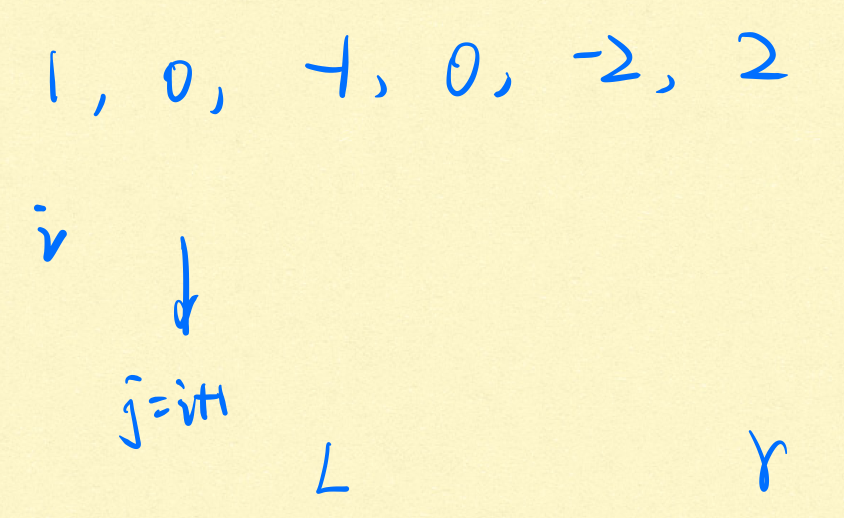 1, 0, -1, 0, -2, 2
i
j=i+1
L r